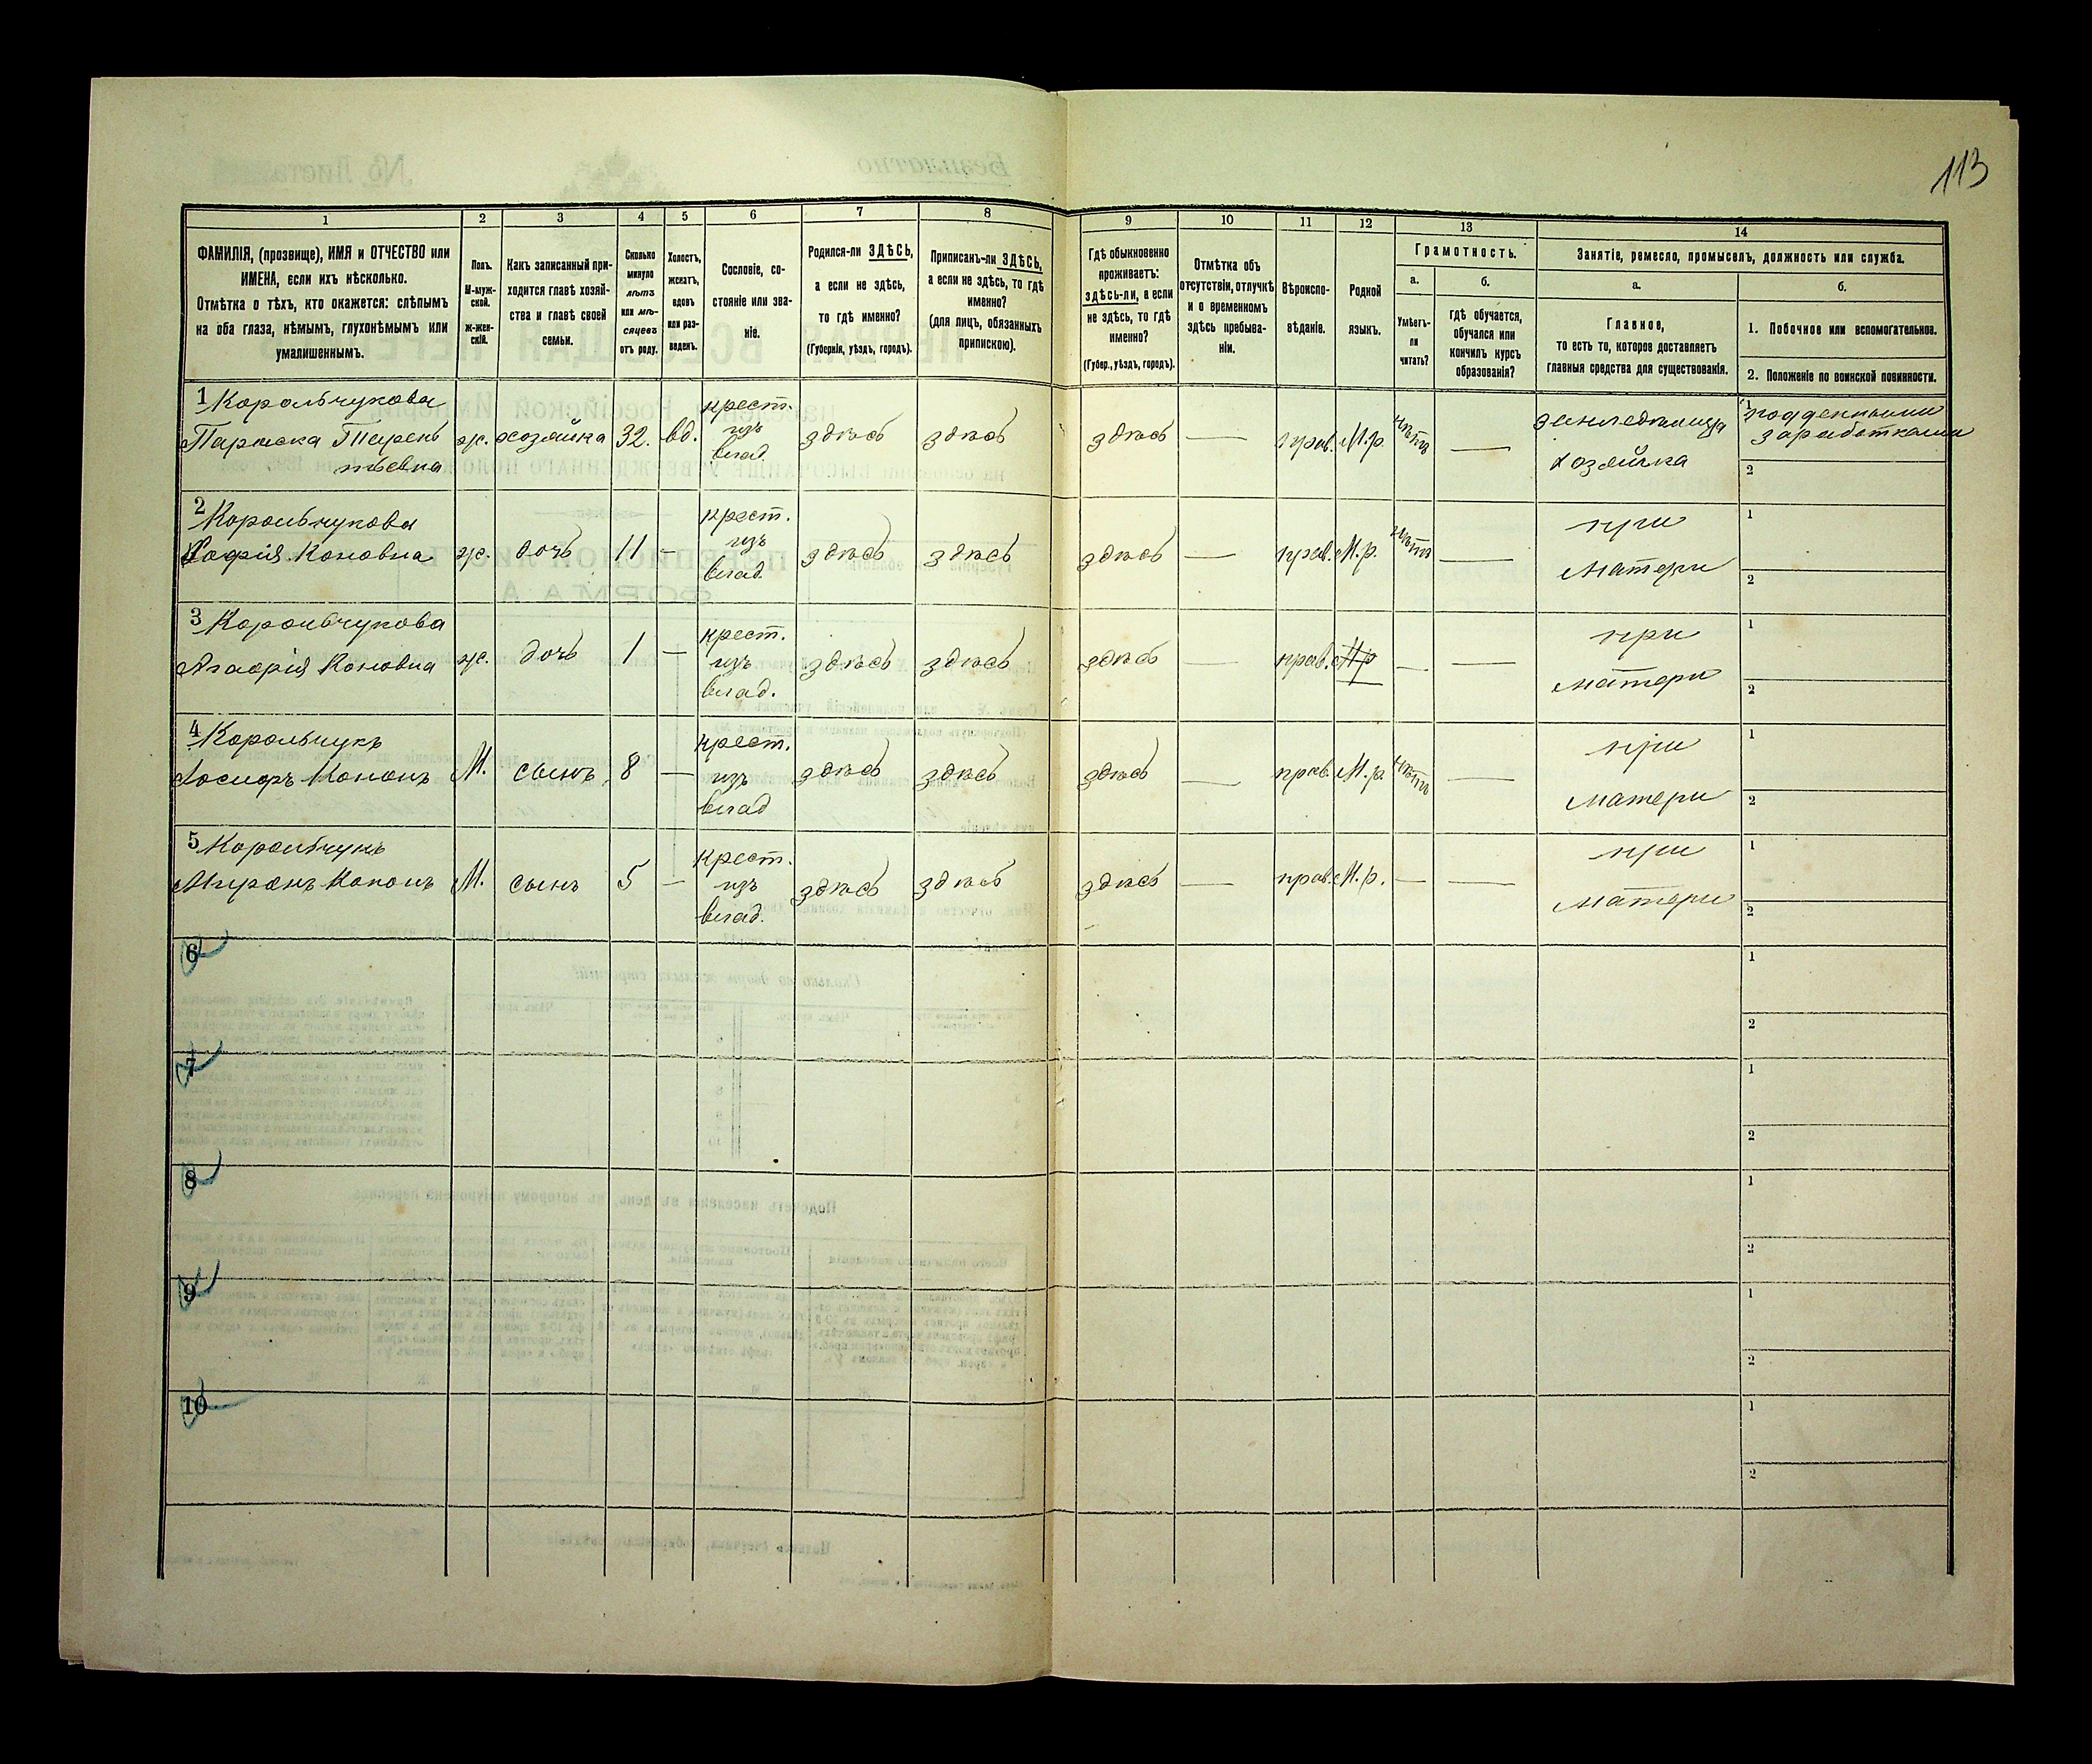 113
1 2 3 4 5 6 7 8 9 10 11 12 13 14
ФАМИЛІЯ, (прозвище), ИМЯ и ОТЧЕСТВО или
ИМЕНА, если ихъ нѣсколько.
Отмѣтка о тѣхъ, кто окажется: слѣпымъ
на оба глаза, нѣмымъ, глухонѣмымъ или
умалишеннымъ.
Полъ.
М-муж-
ской.
Ж-жен-
скій.
Какъ записанный при-
ходится главѣ хозяй-
ства и главѣ своей
семьи.
Сколько
минуло
лѣтъ
или мѣ-
сяцевъ
отъ роду.
Холостъ,
женатъ,
вдовъ
или раз-
веденъ.
Сословіе, со-
стояніе или зва-
ніе.
Родился-ли ЗДѢСЬ,
а если не здѣсь,
то гдѣ именно?
(Губернія, уѣздъ, городъ).
Приписанъ-ли ЗДѢСЬ,
а если не здѣсь, то гдѣ
именно?
(для лицъ, обязанныхъ
припискою).
Гдѣ обыкновенно
проживаетъ:
здѣсь-ли, а если
не здѣсь, то гдѣ
именно?
(Губер., уѣздъ, городъ).
Отмѣтка объ
отсутствіи, отлучкѣ
и о временномъ
здѣсь пребыва-
ніи.
Вѣроиспо-
вѣданіе.
Родной
языкъ.
Грамотность.
а.
Умѣетъ-
ли
читать?
б.
гдѣ обучается,
обучался или
кончилъ курсъ
образованія?
Занятіе, ремесло, промыселъ, должность или служба.
а.
Главное,
то есть то, которое доставляетъ
главныя средства для существованія.
б.
1. Побочное или вспомогательное.
2. Положеніе по воинской повинности.
1 Корольчукова крест. 1 подденными
Параска Терень ж. хозяйка 32. вд. изъ здѣсь здѣсь здѣсь — прав. М.р. нѣтъ — заработками
тьевна влад. хозяйка 2
2 Корольчукова крест. при 1
Софія Коновна ж. дочь 11 — изъ здѣсь здѣсь здѣсь — прав. М.р. нѣтъ —
влад. матери 2
3 Корольчукова крест. при 1
Агафія Коновна ж. дочь 1 — изъ здѣсь здѣсь здѣсь — прав. М.р — —
влад. матери 2
4 Корольчукъ крест. при 1
Іосифъ Кононъ М. сынъ 8 — изъ здѣсь здѣсь здѣсь — прав. М.р. нѣтъ —
влад матери 2
5 Корольчукъ крест. при 1
Миронъ Кононъ М. сынъ 5 — изъ здѣсь здѣсь здѣсь — прав. М.р. — —
влад. матери 2
6 1
2
7 1
2
8 1
2
9 1
2
10 1
2